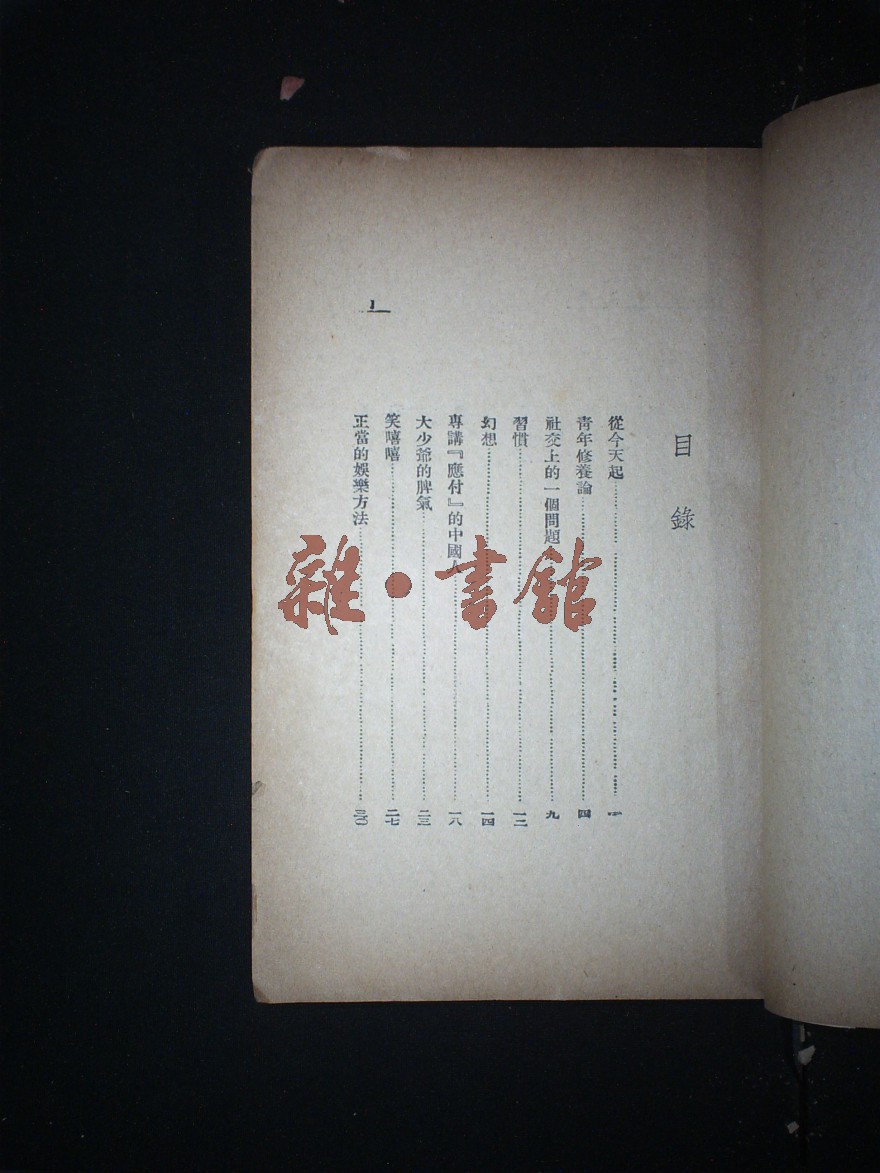 目錄
從今天起 一
青年修養論 四
社交上的一個問題 九
習慣 一二
幻想 一四
專講『應付』的中國人 一八
大少爺的脾氣 二三
笑嘻嘻 二七
正當的娛樂方法 三〇
1
雜·書館